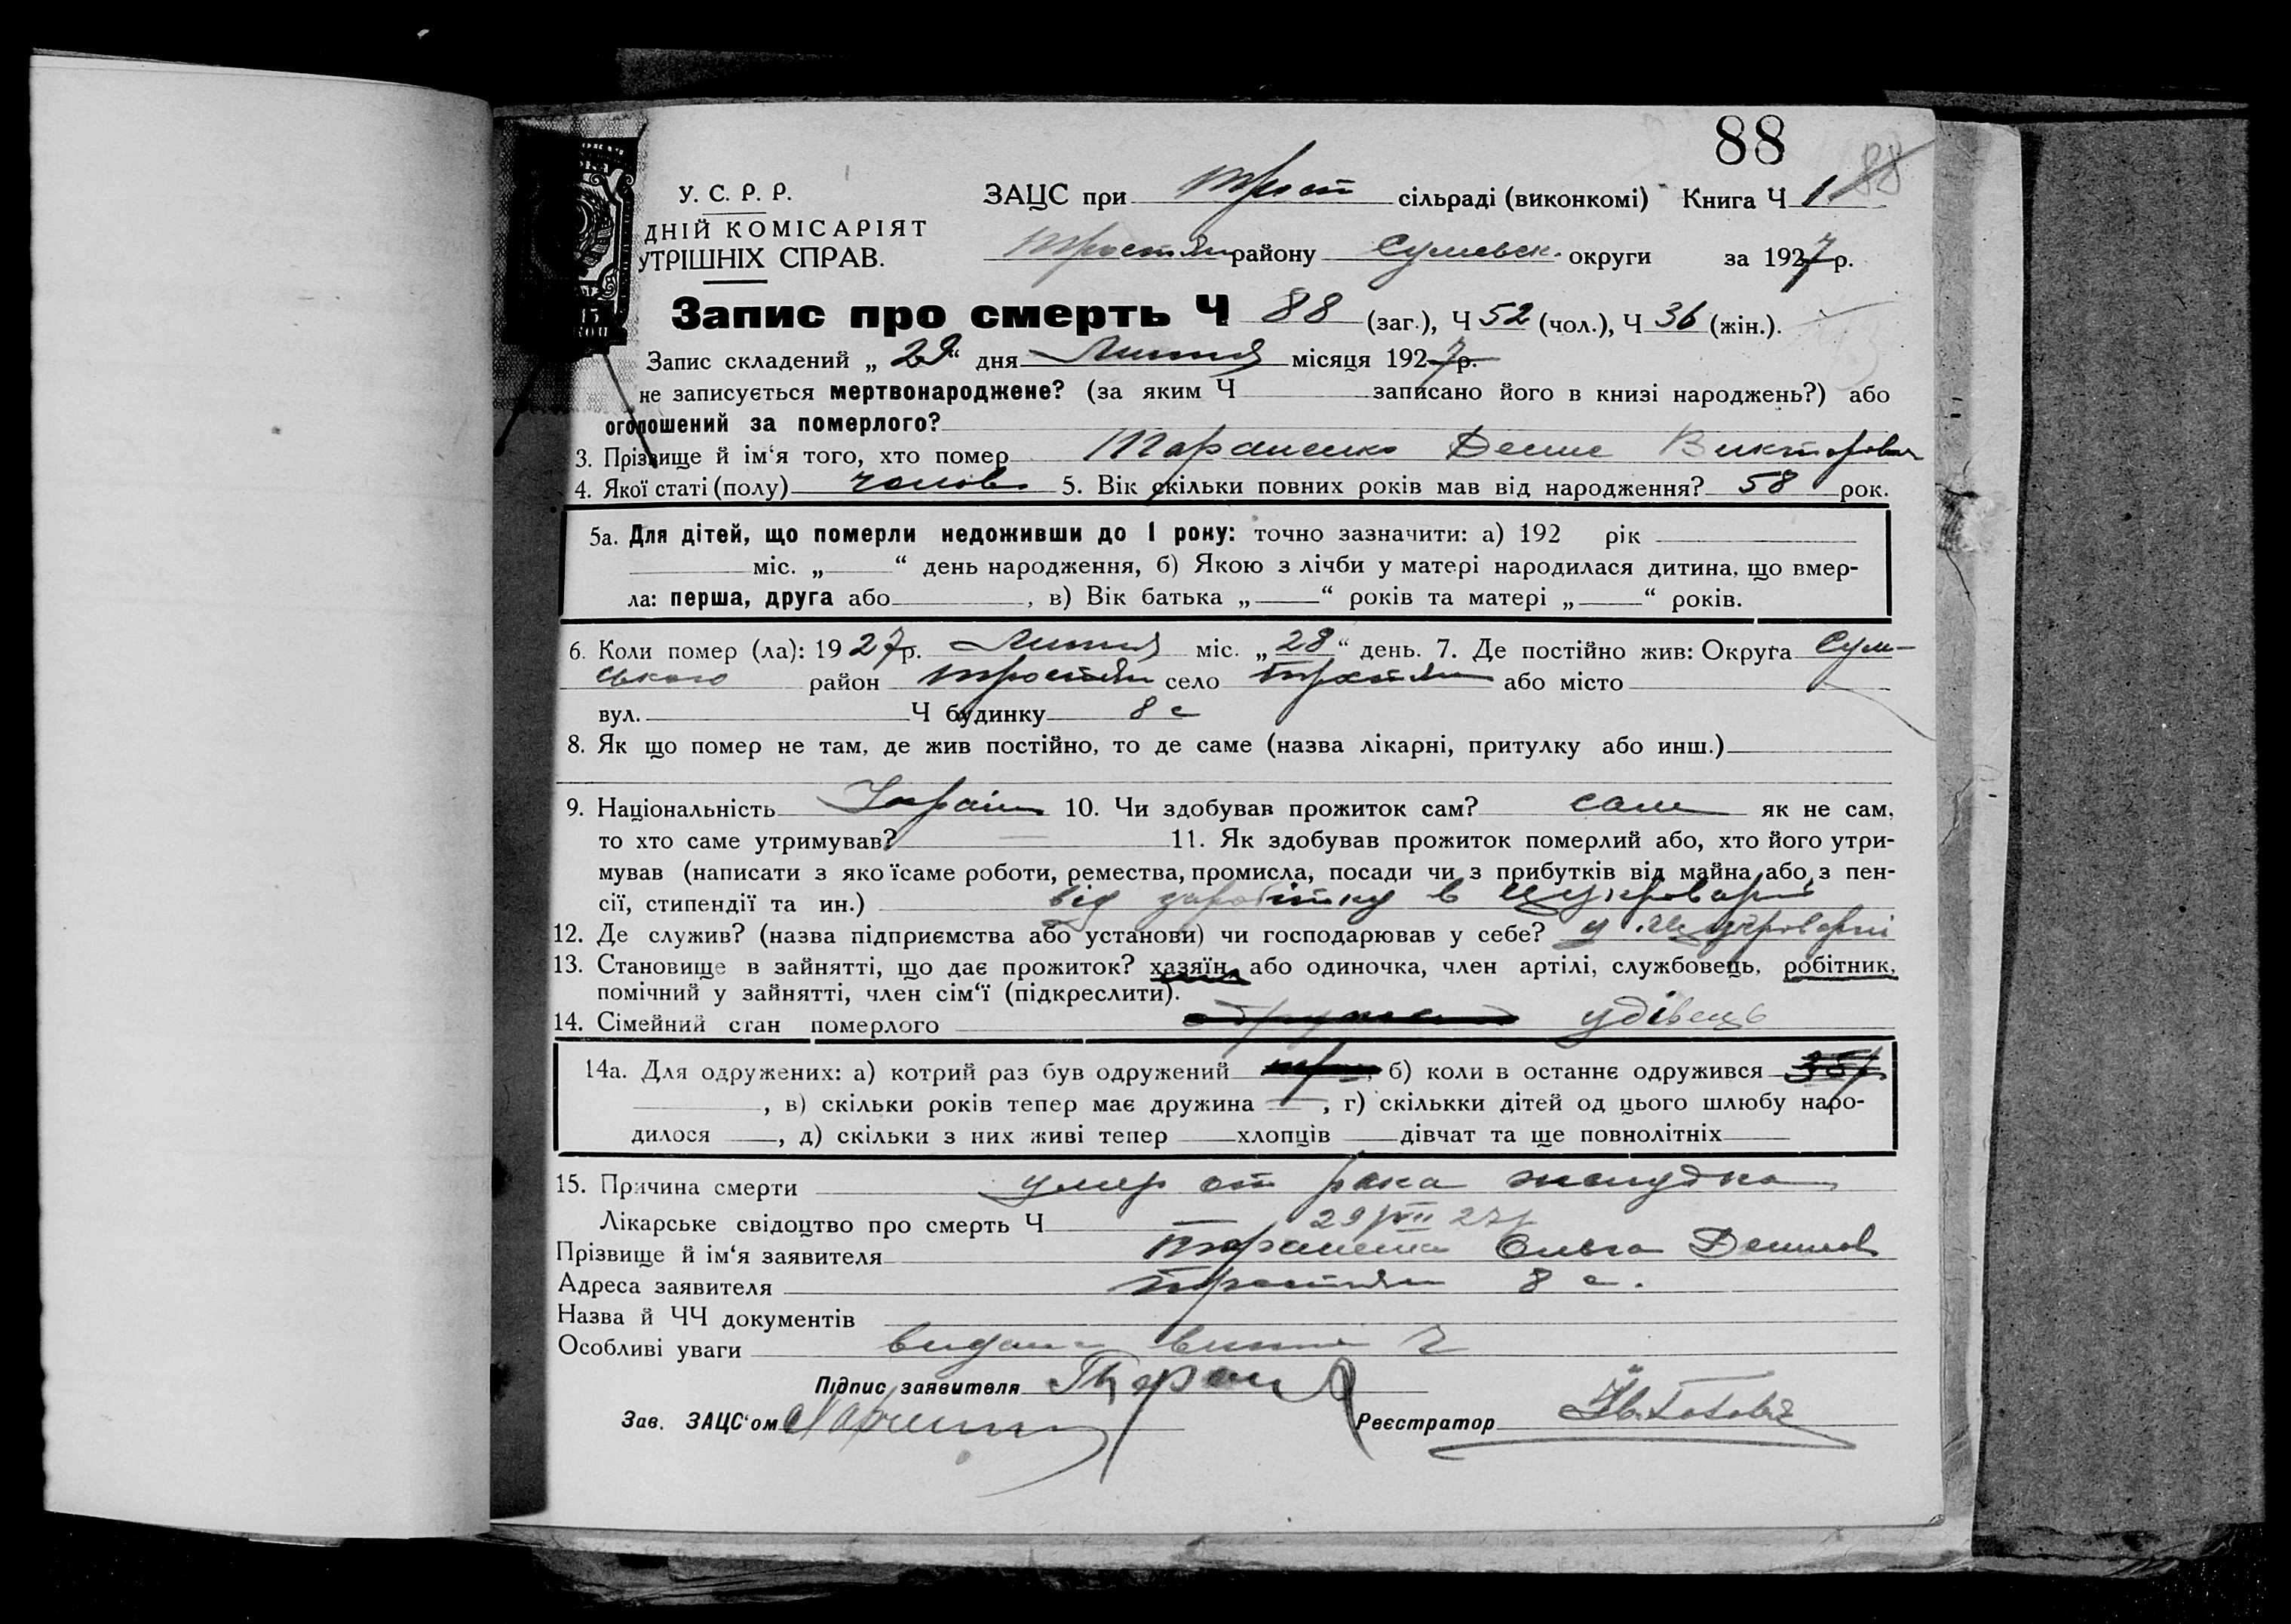 88
88
У. С. Р. Р.
ЗАЦС при Трост сільраді (виконкомі) Книга Ч 1
ДНІЙ КОМІСАРІЯТ
Тростян району Сумськ. округи за 1927 р.
УТРІШНІХ СПРАВ.
Запис про смерть Ч 88 (заг.), Ч 52 (чол.), Ч 36 (жін.).
Запис складений „ 29 “ дня Липня місяця 1927 р.
не записується мертвонароджене? (за яким Ч записано його в книзі народжень?) або
оголошений за померлого?
3. Прізвище й ім‘я того, хто помер Тараненко Денис Викторович
4. Якої статі (полу) чолов. 5. Вік скільки повних років мав від народження? 58 рок.
5а. Для дітей, що померли недоживши до 1 року: точно зазначити: а) 192 рік
міс. „ “ день народження, б) Якою з лічби у матері народилася дитина, що вмер-
ла: перша, друга або , в) Вік батька „ “ років та матері „ “ років.
6. Коли помер (ла): 1927 р. Липня міс. „ 28 “ день. 7. Де постійно жив: Округа Сум-
ського район Тростян село Тростян або місто
вул. Ч будинку 8 с
8. Як що помер не там, де жив постійно, то де саме (назва лікарні, притулку або инш.)
9. Національність Україн 10. Чи здобував прожиток сам? сам як не сам,
то хто саме утримував? — 11. Як здобував прожиток померлий або, хто його утри-
мував (написати з яко їсаме роботи, ремества, промисла, посади чи з прибутків від майна або з пен-
сії, стипендії та ин.) від заробітку в цукроварні
12. Де служив? (назва підприємства або установи) чи господарював у себе? у цукроварні
13. Становище в зайнятті, що дає прожиток? хазяїн, або одиночка, член артілі, службовець, робітник,
помічний у зайнятті, член сім‘ї (підкреслити).
14. Сімейний стан померлого удівець
14а. Для одружених: а) котрий раз був одружений , б) коли в останнє одружився
, в) скільки років тепер має дружина — , г) скількки дітей од цього шлюбу наро-
дилося , д) скільки з них живі тепер хлопців дівчат та ще повнолітніх
15. Причина смерти умер от рака желудка
Лікарське свідоцтво про смерть Ч — 29/VII 27р
Прізвище й ім‘я заявителя Тараненко Ольга Денисов
Адреса заявителя Тростян 8 с.
Назва й ЧЧ документів
Особливі уваги видана
Підпис заявителя Таран
Зав. ЗАЦС‘ом Реєстратор